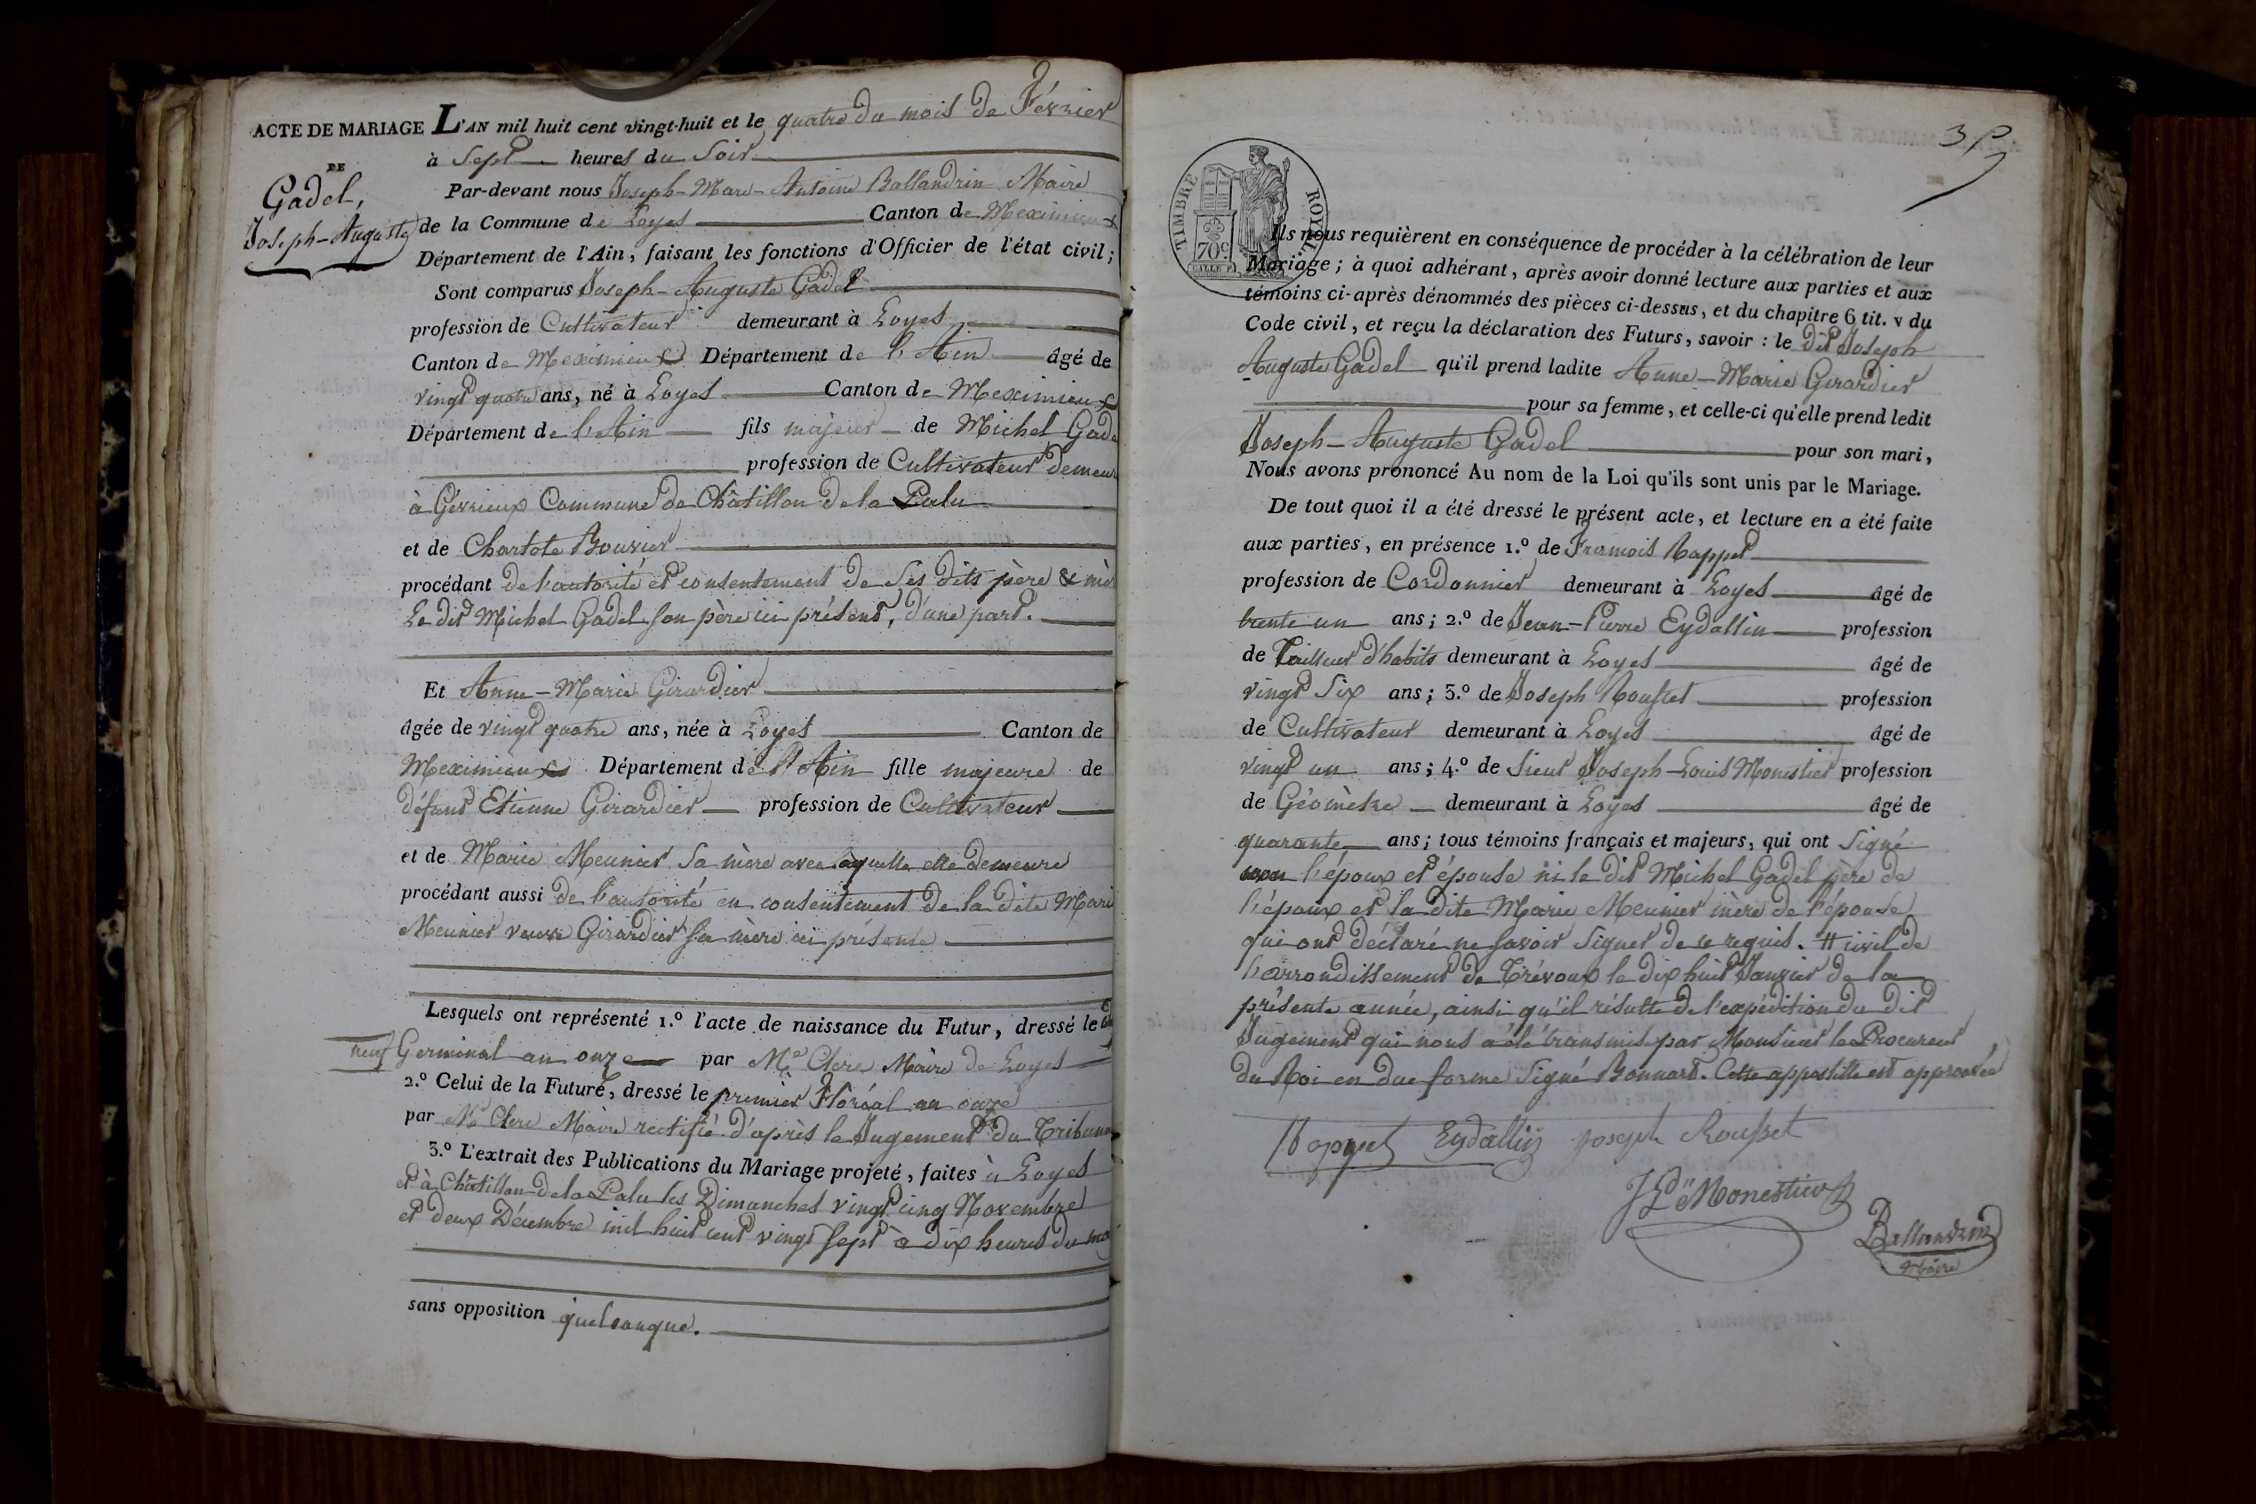 ACTE DE MARIAGE
DE
Gadel,
Joseph-Auguste
L'AN mil huit cent vingt-huit et le quatre du mois de Février
à Sept heures du Soir
Par-devant nous Joseph-Marc-Antoine Ballandrin Maire
de la Commune de Loyes Canton de Meximieux
Département de l'Ain, faisant les fonctions d'Officier de l'état civil;
Sont comparus Joseph-Auguste Gadel
profession de Cultivateur demeurant à Loyes
Canton de Meximieux Département de l'Ain âgé de
vingt quatre ans, né à Loyes Canton de Meximieux
Département de l'Ain fils majeur de Michel Gade
profession de Cultivateur demeur
à Gévrieux Commune de Châtillon de la Palu
et de Charlote Bouvier
procédant de l'autorité et consentement de Ses dits père & mè
Le dit Michel Gadel son père ici présent, d'une part.
Et Anne-Marie Girardier
âgée de vingt quatre ans, née à Loyes Canton de
Meximieux Département de l'Ain fille majeure de
défunt Etienne Girardier profession de Cultivateur
et de Marie Meunier Sa mère avec laquelle elle demeure
procédant aussi de l'autorité en consentement de la dite Mari
Meunier veuve Girardier sa mère ici présente
Lesquels ont représenté 1.º l'acte de naissance du Futur, dressé le
neuf Germinal an onze par Mr Clerc Maire de Loyes
2.º Celui de la Future, dressé le premier Floréal an onze
par Mr Clerc Maire rectifié d'après le Jugement du Tribunal
3.º L'extrait des Publications du Mariage projeté, faites à Loyes
et à Châtillon de la Palu les Dimanches vingt cinq Novembre
et deux Décembre mil huit cent vingt sept à dix heures du mat
sans opposition quelconque.
TIMBRE ROYAL
70c.
Ils nous requièrent en conséquence de procéder à la célébration de leur
Mariage; à quoi adhérant, après avoir donné lecture aux parties et aux
témoins ci-après dénommés des pièces ci-dessus, et du chapitre 6 tit. v du
Code civil, et reçu la déclaration des Futurs, savoir : le dit Joseph
Auguste Gadel qu'il prend ladite Anne-Marie Girardier
pour sa femme, et celle-ci qu'elle prend ledit
Joseph-Auguste Gadel pour son mari,
Nous avons prononcé Au nom de la Loi qu'ils sont unis par le Mariage.
De tout quoi il a été dressé le présent acte, et lecture en a été faite
aux parties, en présence 1.º de François Rappet
profession de Cordonnier demeurant à Loyes âgé de
trente un ans; 2.º de Jean-Pierre Eydallin profession
de Tailleur d'habits demeurant à Loyes âgé de
vingt Six ans; 3.º de Joseph Rousset profession
de Cultivateur demeurant à Loyes âgé de
vingt un ans; 4.º de Sieur Joseph-Louis Monestier profession
de Géomètre demeurant à Loyes âgé de
quarante ans; tous témoins français et majeurs, qui ont Signé
non l'époux et épouse ni le dit Michel Gadel père de
l'époux et la dite Marie Meunier mère de l'épouse
qui ont déclaré ne savoir signer de ce requis. # civil de
l'arrondissement de Trévoux le dix huit Janvier de la
présente année, ainsi qu'il résulte de l'expédition du dit
Jugement qui nous a été transmis par Monsieur le Procureur
du Roi en due forme Signé Bonnart. Cette appostille est approuvée
Roppet Eydallin Joseph Rousset
JLs Monestier
Ballandrin
Maire